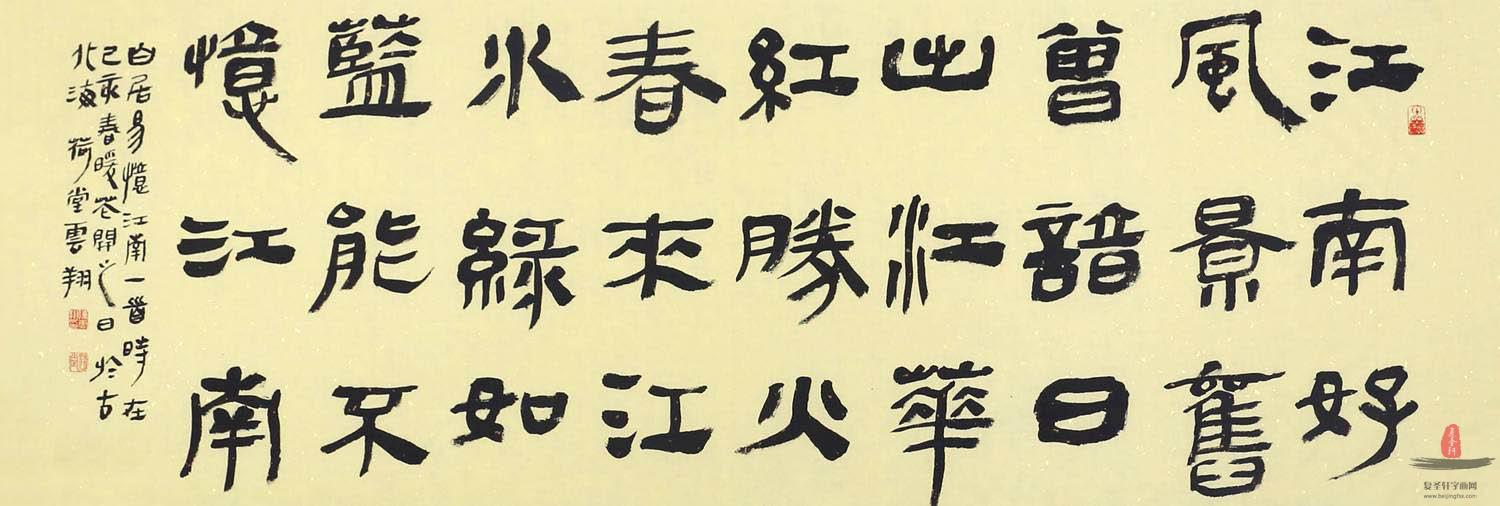 江南好
風景舊
曾諳日
出江華
紅勝火
春來江
水綠如
藍能不
憶江南
白居易憶江南一首時在
己亥春暖花開之日於古
北海荷堂雲翔
复圣轩字画网